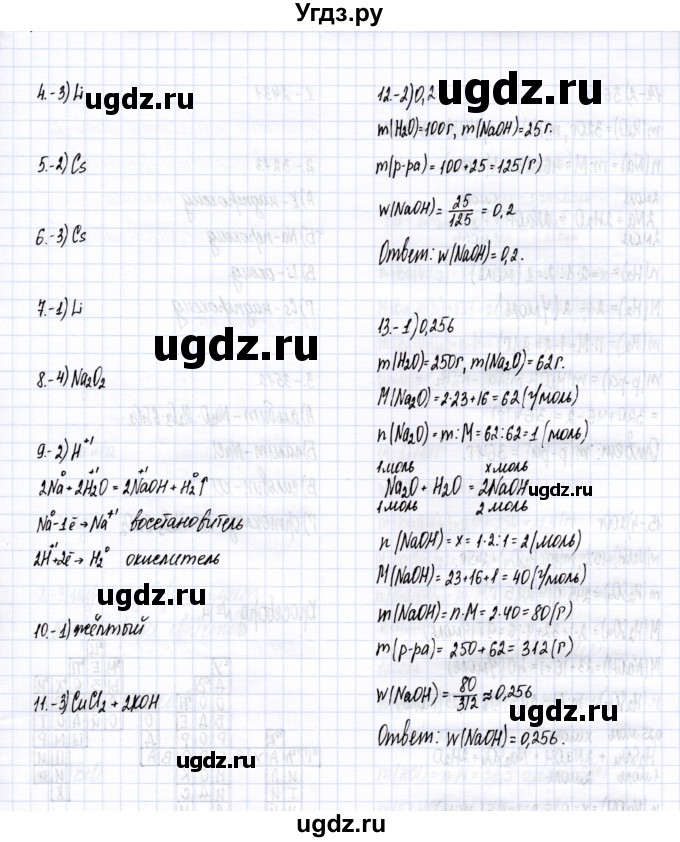 Угдз.ру
4.-3) Li
ugdz.ru
5.-2) Cs
6.-3) Cs
7.-1) Li
ugdz.ru
8.-4) Na₂O₂
9.-2) H⁺¹
2Na⁰ + 2H₂⁺¹O = 2NaOH⁺¹ + H₂⁰↑
Na⁰-1ē → Na⁺¹ восстановитель
2H⁺¹+2ē → H₂⁰ окислитель
ugdz.ru
10.-1) жёлтый
11.-3) CuCl₂ + 2KOH
ugdz.ru
12.-2) 0,2
ugdz.ru
m(H₂O)=100г, m(NaOH)=25г.
m(р-ра)=100+25=125(г)
w(NaOH)= 25/125 = 0,2
Ответ: w(NaOH)=0,2.
ugdz.ru
13.-1) 0,256
m(H₂O)=250г, m(Na₂O)=62г.
M(Na₂O)=2·23+16=62(г/моль)
n(Na₂O)=m:M=62:62=1(моль)
1 моль x моль
Na₂O + H₂O = 2NaOH
1 моль 2 моль
ugdz.ru
n(NaOH)=x=1·2:1=2(моль)
M(NaOH)=23+16+1=40(г/моль)
m(NaOH)=n·M=2·40=80(г)
m(р-ра)=250+62=312(г)
w(NaOH)= 80/312 ≈ 0,256
ugdz.ru
Ответ: w(NaOH)=0,256.
ugdz.ru